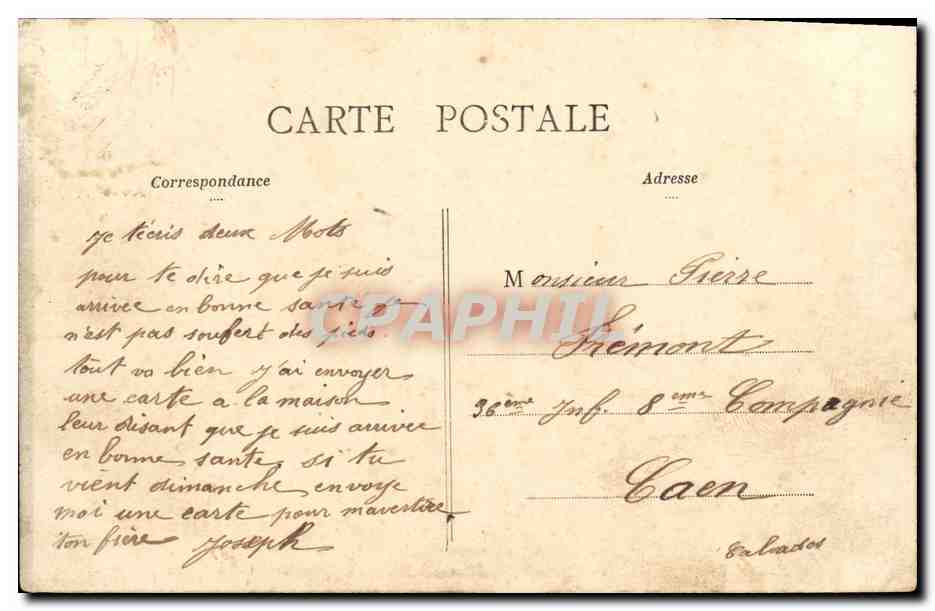 CARTE POSTALE
Correspondance
Adresse
Je técris deux Mots
pour te dire que je suis
arrivée en bonne sante je
n'est pas soufert des pieds
tout va bien j'ai envoyer
une carte a la maison
leur disant que je suis arrivée
en bonne sante, si tu
vient dimanche envoye
moi une carte pour m'avertire
ton frère Joseph
Monsieur Pierre
Frémont
36ème Inf. 8eme Compagnie
Caen
Calvados
CPAPHIL